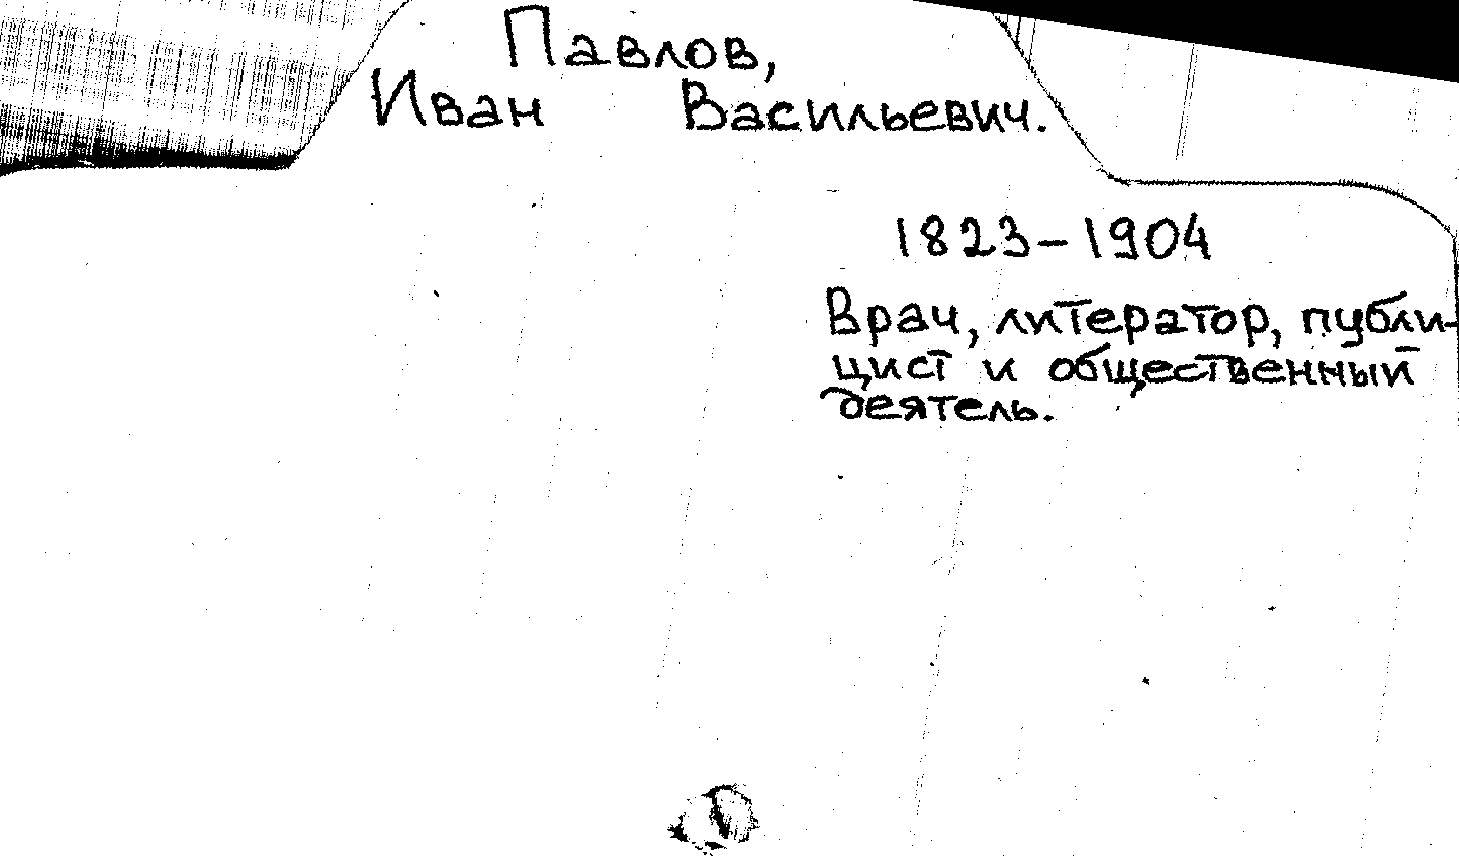 Павлов,
Иван Васильевич.
1823-1904
Врач, литератор, публи-
цист и общественный
деятель.